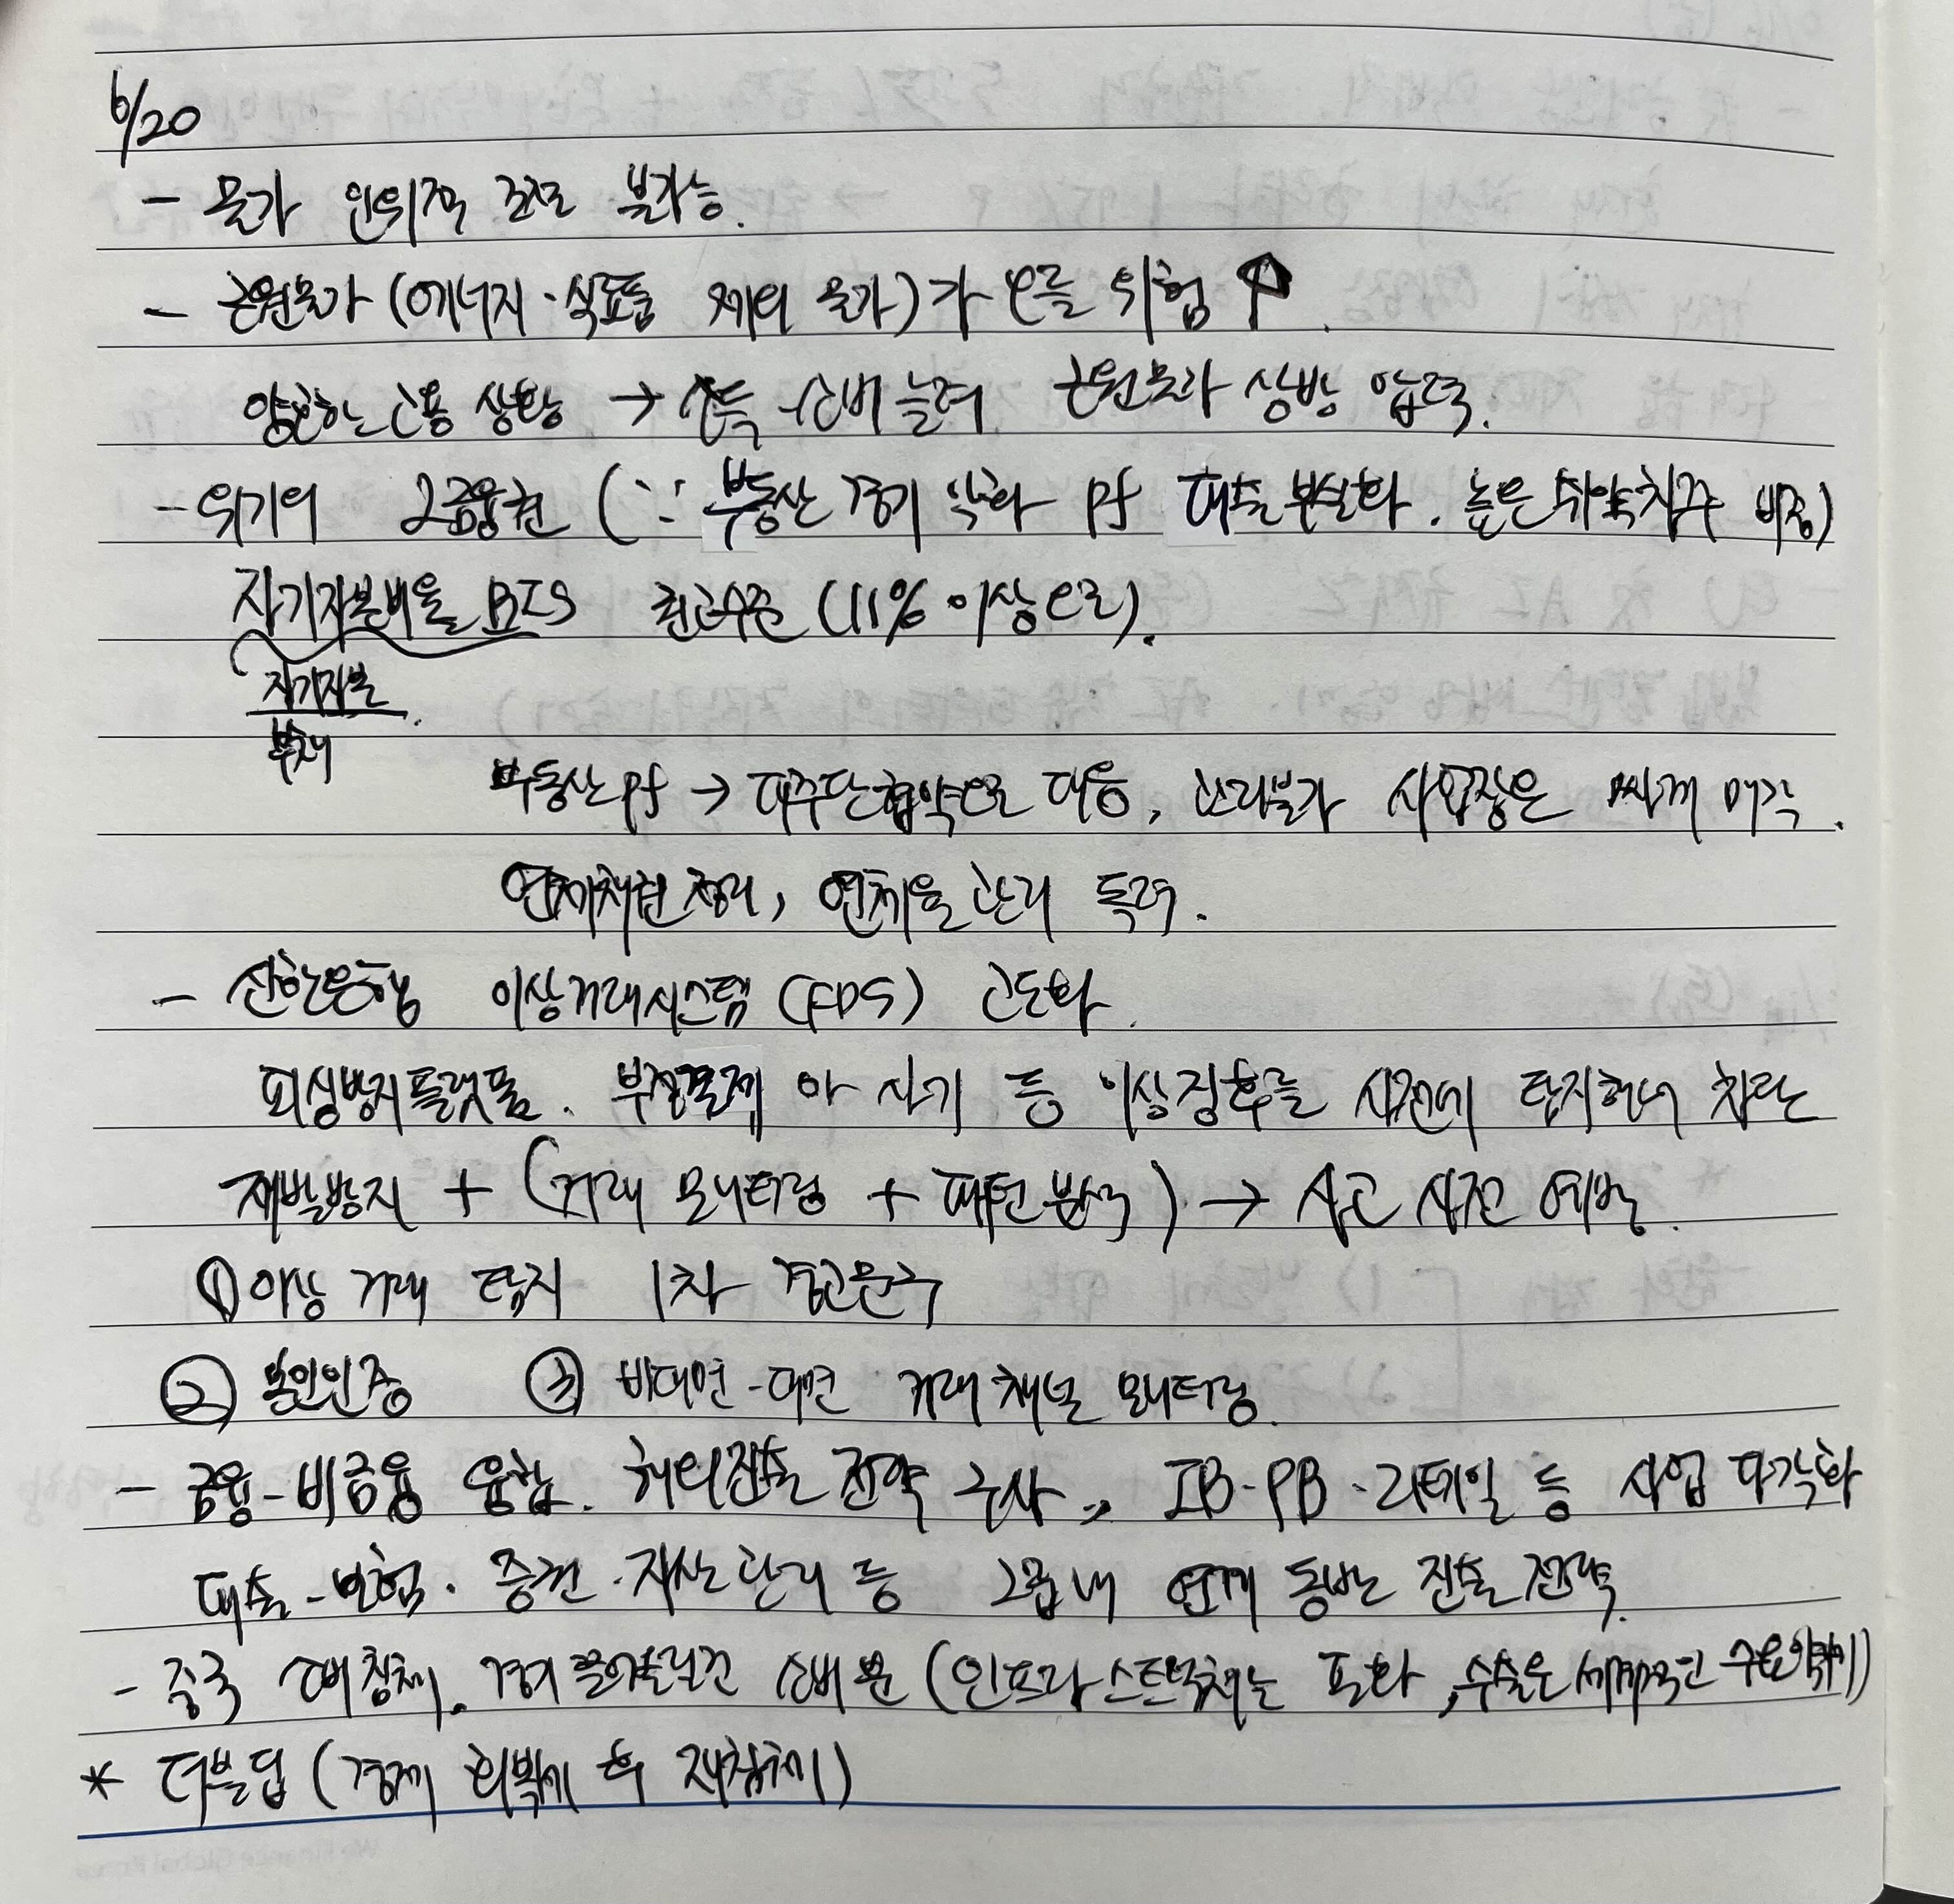 6/20
- 물가 인위적 조절 불가능.
- 근원물가 (에너지·식료품 제외 물가)가 오를 위험 ↑.
양호한 고용 상황 → 소득·소비 늘려 근원물가 상방 압력.
- 위기의 2금융권 (∵ 부동산 경기 악화 Pf 대출 부실화. 높은 취약차주 비중)
자기자본비율 BIS 최고수준 (11% 이상으로).
자기자본
부채
부동산 Pf → 대주단협약으로 대응, 관리불가 사업장은 싸게 매각.
연체채권 정리, 연체율 관리 독려.
- 신한은행 이상거래시스템 (FDS) 고도화.
피싱방지플랫폼. 부정결제 사기 등 이상징후를 사전에 탐지하여 차단
재발방지 + (거래 모니터링 + 패턴 분석) → 사고 사전 예방.
① 이상 거래 탐지 1차 경고문구
② 본인인증 ③ 비대면-대면 거래채널 모니터링.
- 금융-비금융 융합. 해외진출 전략 구사, IB·PB·리테일 등 사업 다각화
대출-보험·증권·자산관리 등 그룹내 연계 동반 진출 전략.
- 중국 소비침체. 경기 끌어올릴건 소비뿐 (인프라스트럭쳐는 포화, 수출은 세계적인 수요약세)
* 더블딥 (경제 회복세 후 재침체)